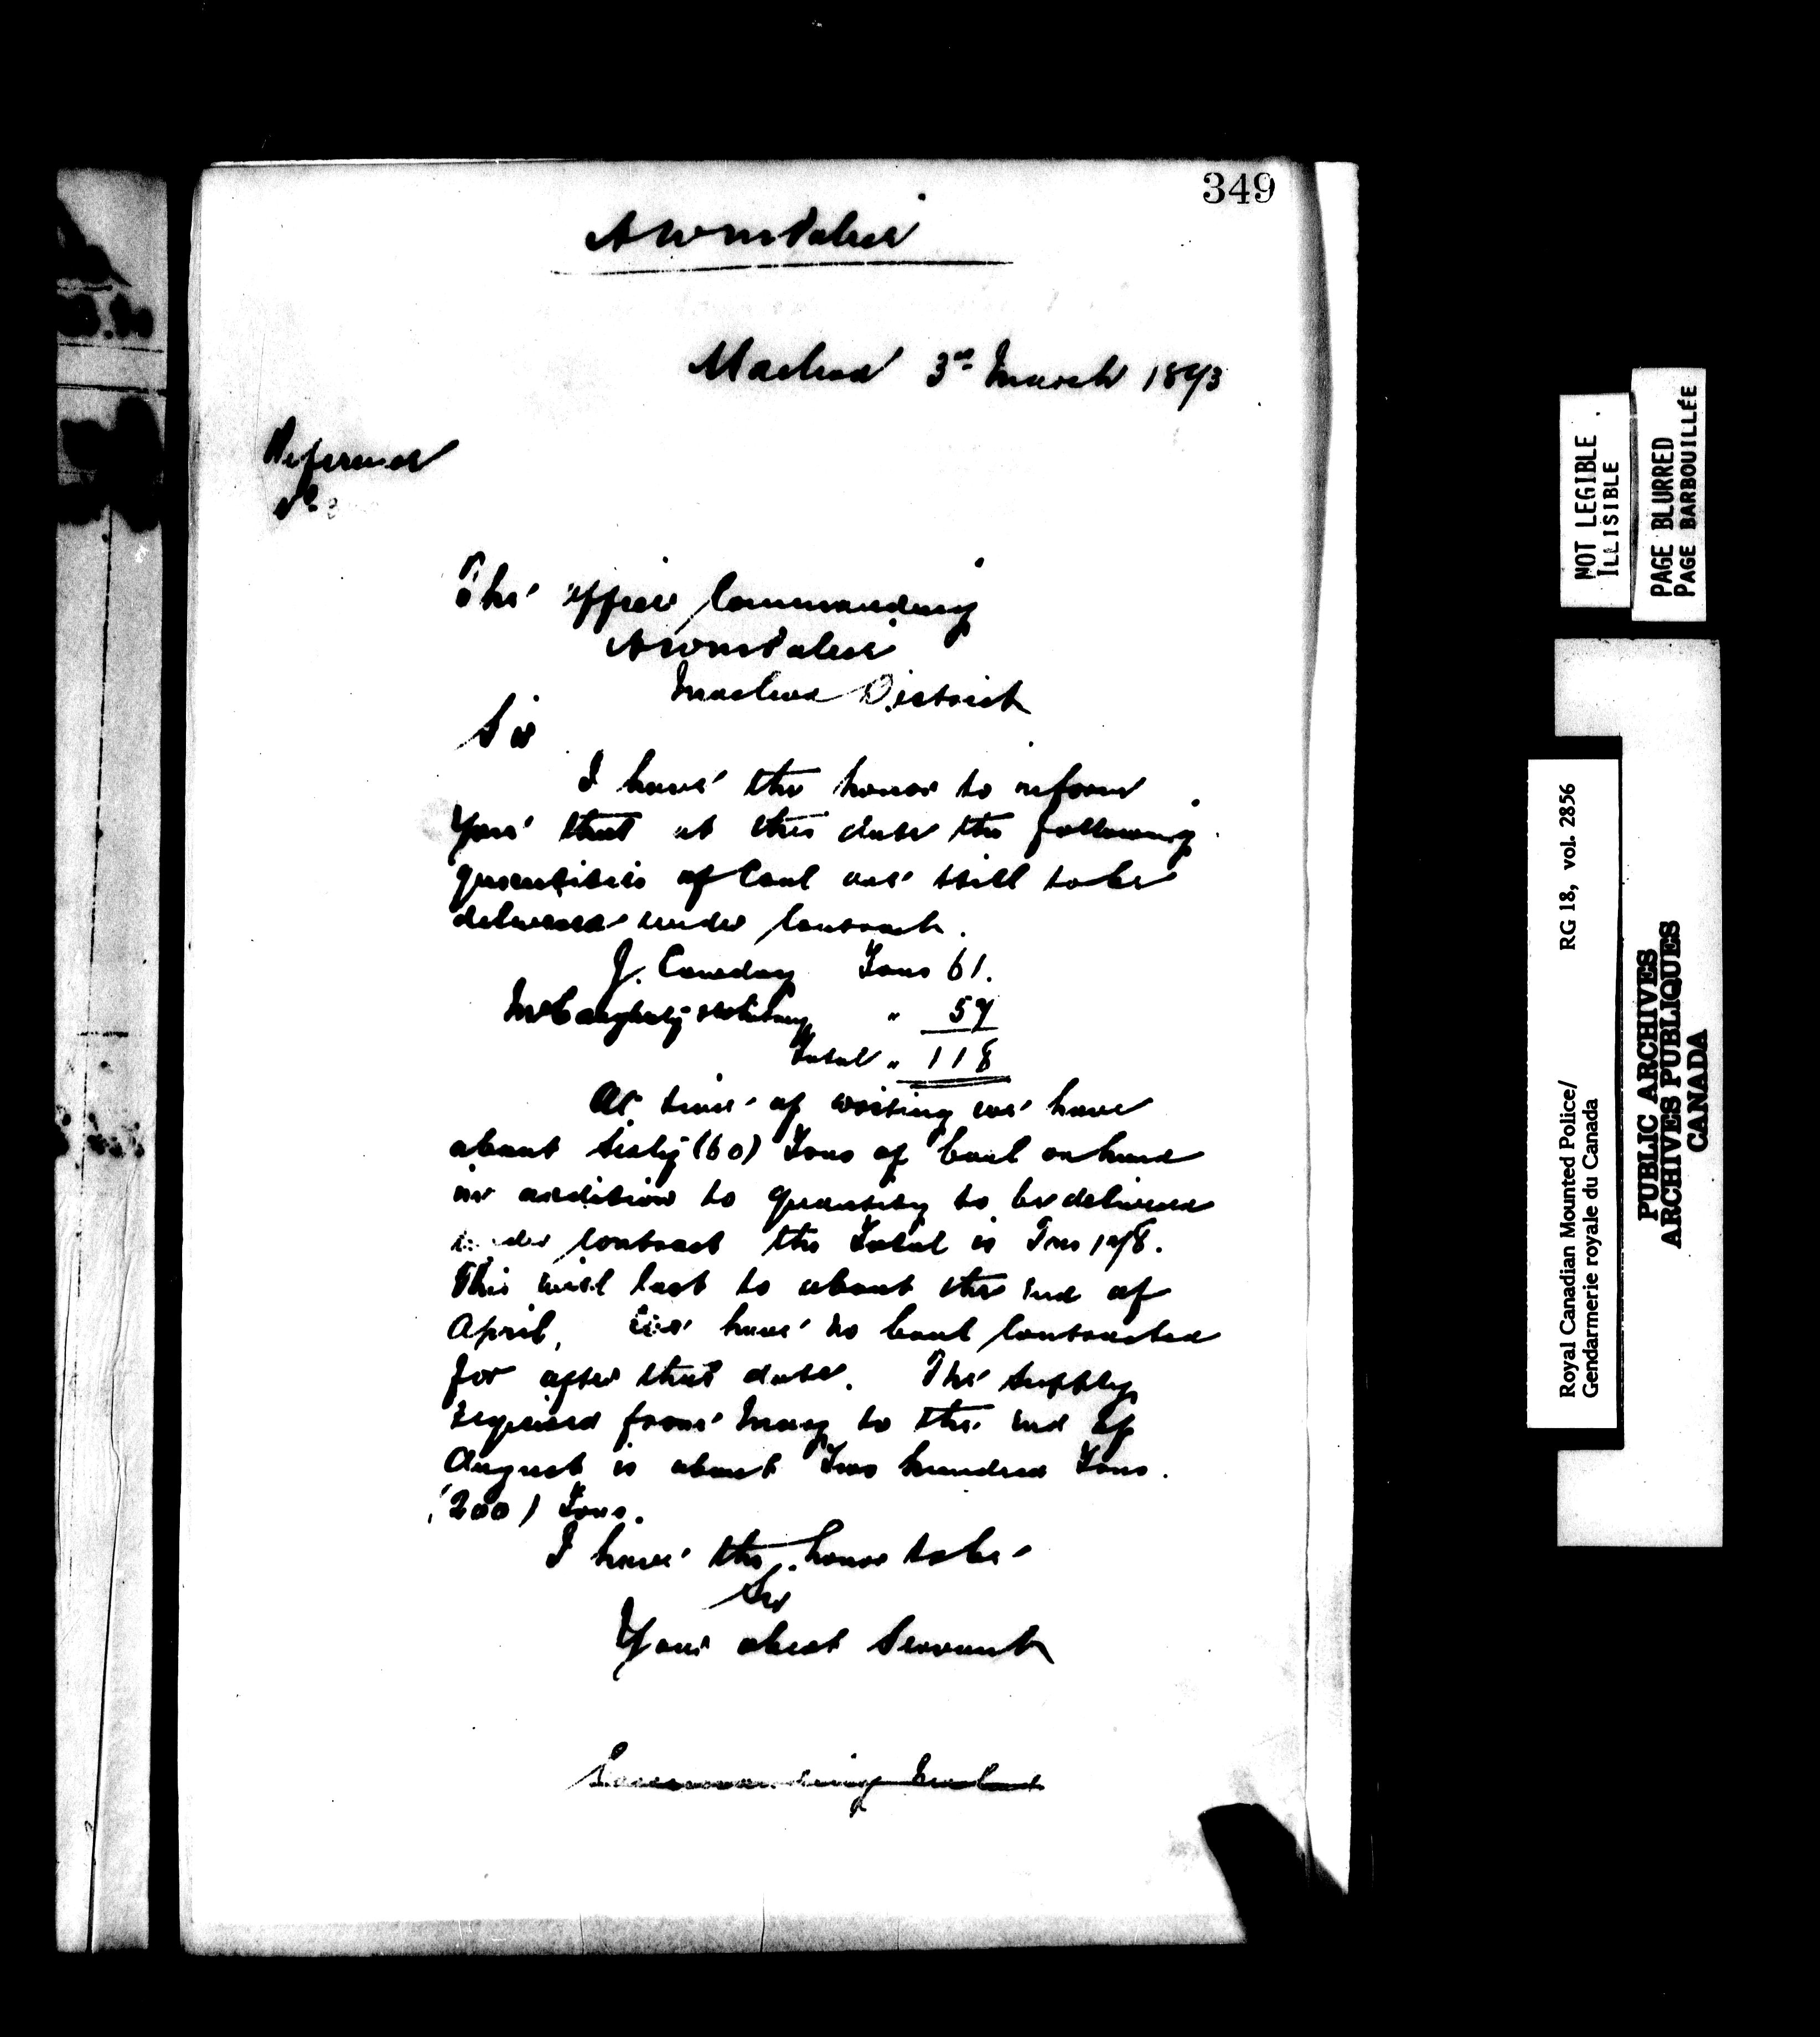 349
NWMPolice
Macleod 3rd March 1893
Reference
No
The Officer Commanding
NWMPolice
Macleod District
Sir
I have the honor to inform
you that at this date the following
quantities of Coal are still to be
delivered under Contract.
J. Cowdry Tons 61.
" 57
Total " 118
At time of writing we have
about Sixty (60) Tons of Coal on hand
in addition to quantity to be delivered
under Contract the Total is Tons 178.
This will last to about the end of
April, we have no Coal Contracted
for after that date. The supply
required from May to the end of
August is about Two hundred Tons.
(200) Tons.
I have the honor to be
Sir
Your obedt Servant
Commanding
NOT LEGIBLE
ILLISIBLE
PAGE BLURRED
PAGE BARBOUILLÉE
Royal Canadian Mounted Police/ RG 18, vol. 2856
Gendarmerie royale du Canada
PUBLIC ARCHIVES
ARCHIVES PUBLIQUES
CANADA